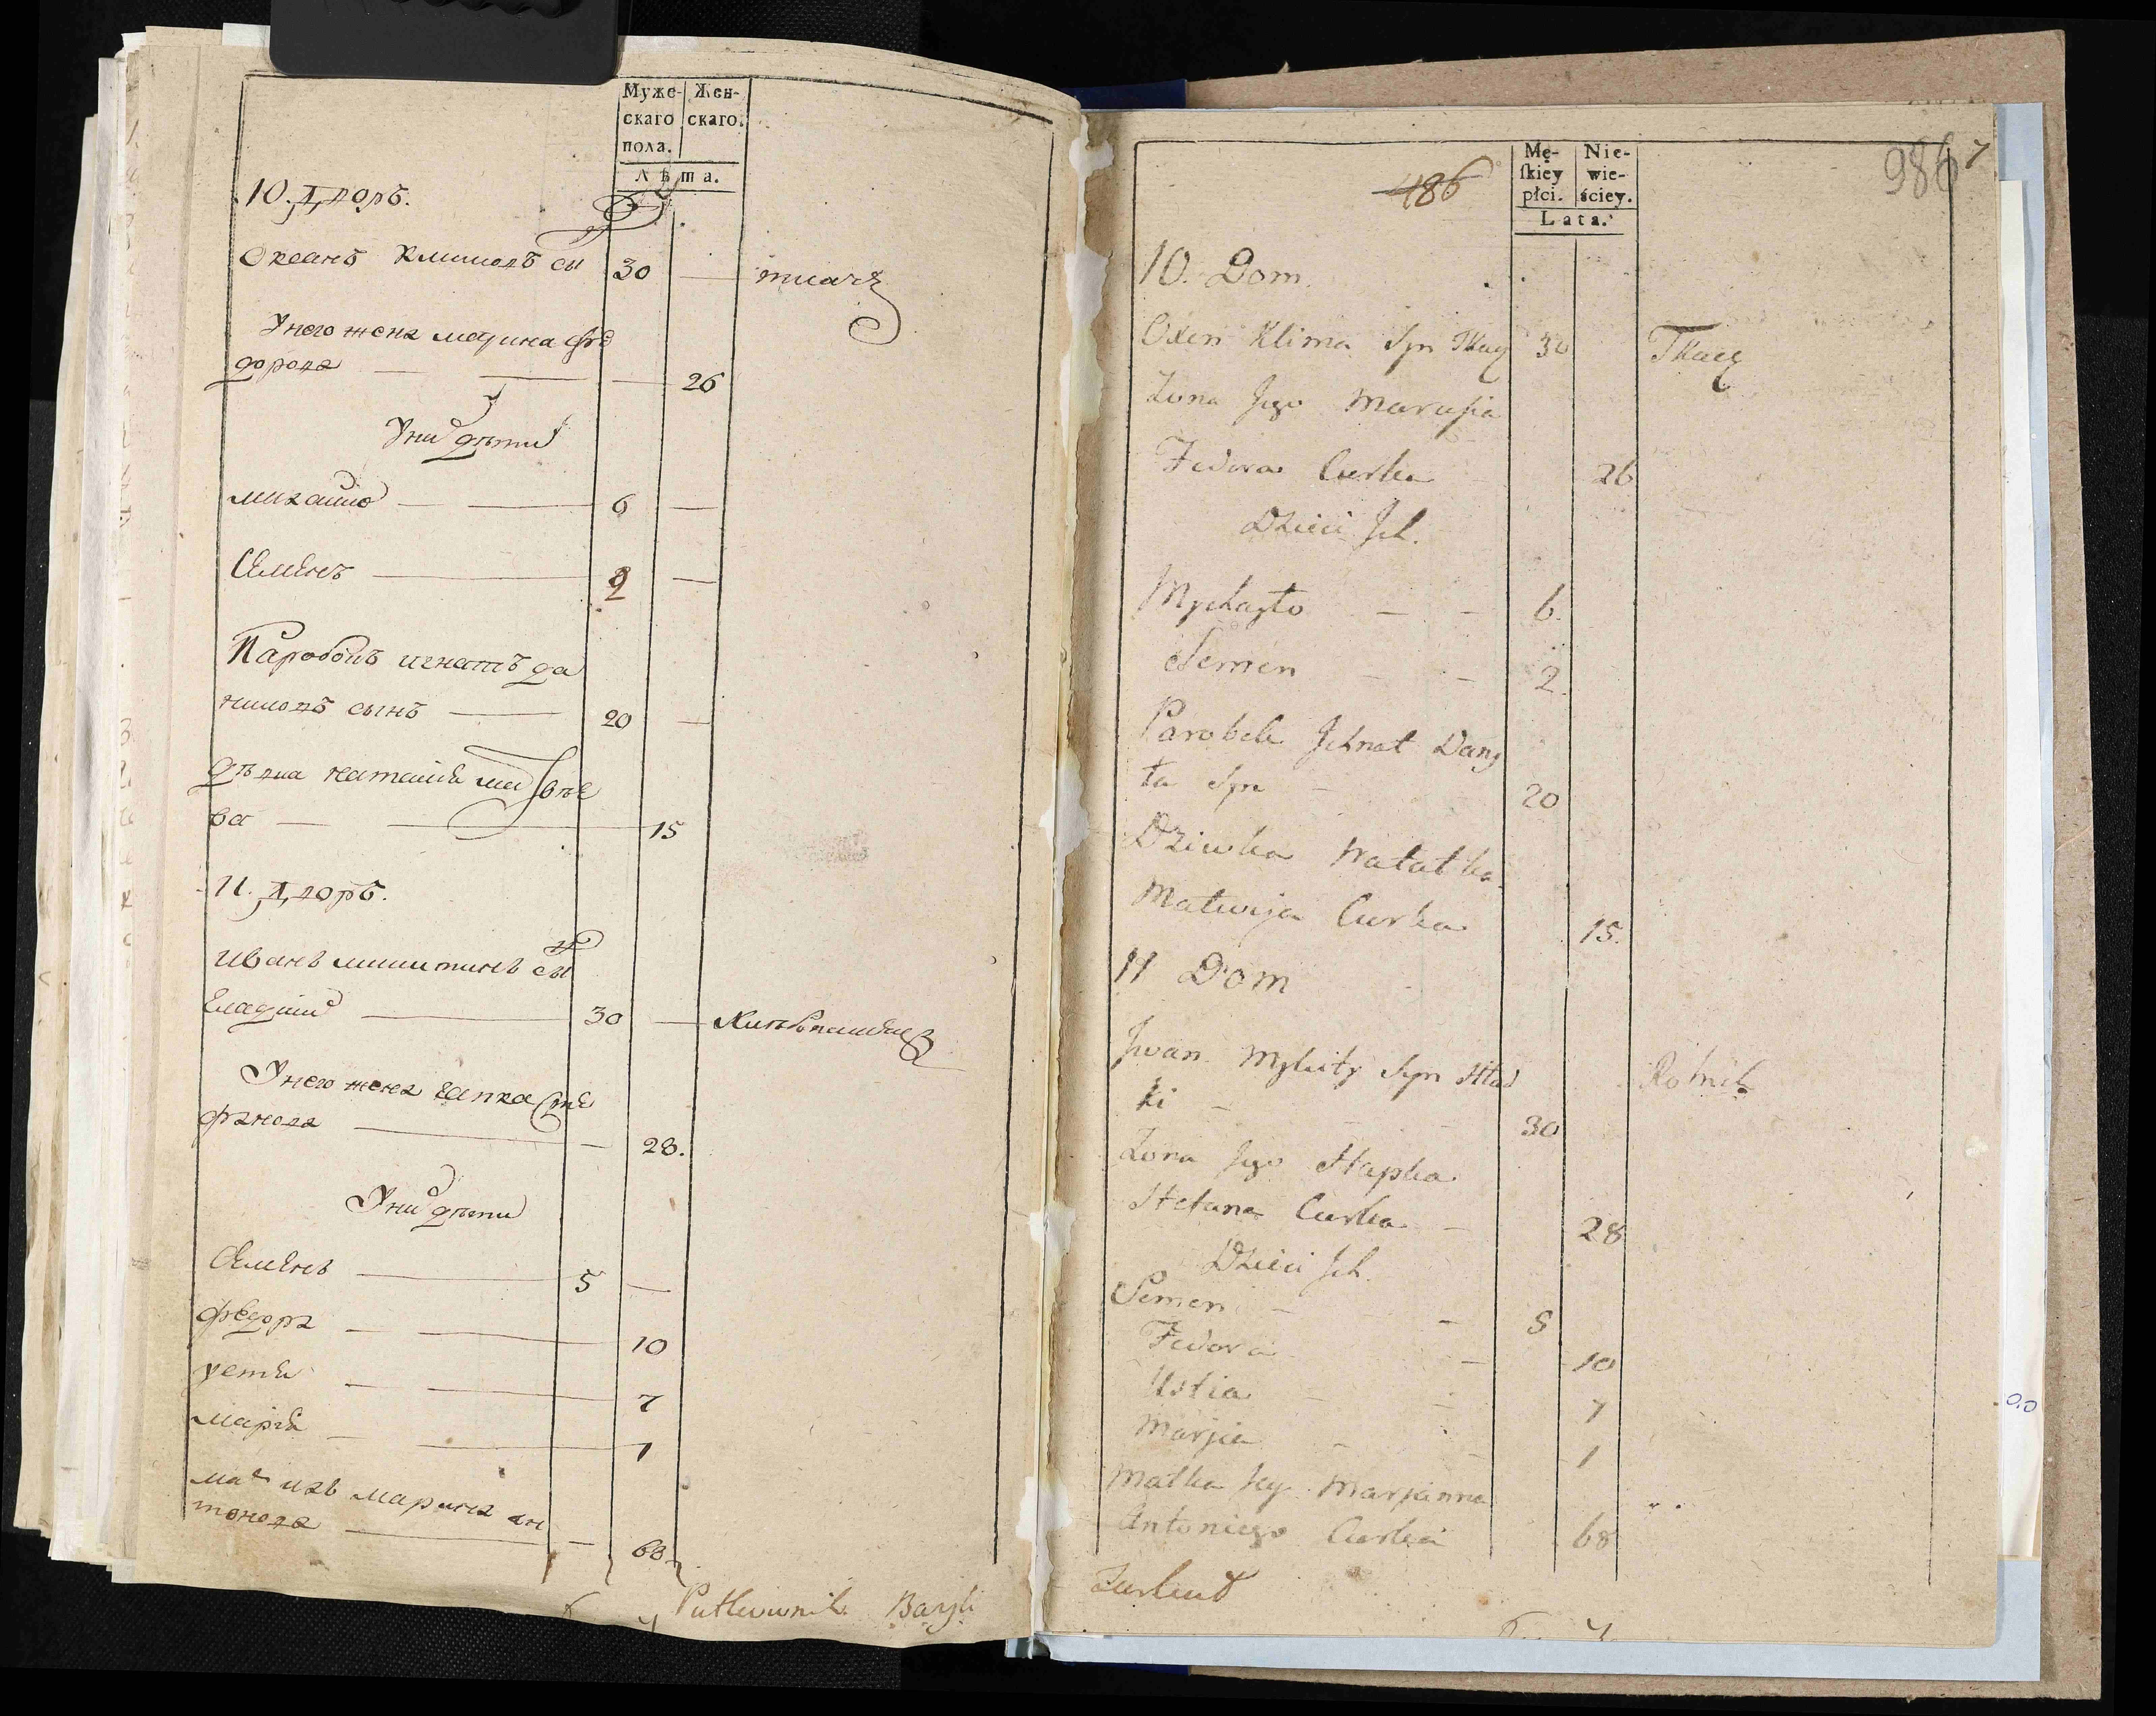 Муже-
скаго
пола.
Жен-
скаго.
Лѣта.
10. Дворъ.
Оксенъ Климовъ сы 30 — ткачъ
У него жена марина Фе
дорова — — — 26
У ни дѣти
михаило — — 6 —
Семенъ — 2 —
Паробокъ игнатъ да
ниловъ сынъ — 20 —
дѣвка наталия матвѣе
ва — — 15
11. Дворъ.
иванъ микитинъ сы
гладкий — 30 — хлѣбопашецъ
У него жена гапка Сте
фанова — — 28.
У ни дѣти
Семенъ — 5 —
федора — — 10
устя — — 7
мария — — 1
мат ихъ марина ан
тонова — — 68
Putkownik Bazyli
486
986
7
Mę-
ſkiey
płci.
Nie-
wie-
ściey.
Lata.
10. Dom.
Oxen Klima Syn Tkacz 30 Tkacz
Zona Jego Marusia
Fedora Curka 26
Dzieci Jch.
Mychayło — — 6.
Semen — — 2.
Parobek Jchnat Dany
ła Syn — 20
Dziwka Natalka
Matwija Curka 15.
11 Dom
Jwan Mykity Syn Hład
ki — 30 Rolnik
Zona Jego Hapka
Stefana Curka — 28
Dzieci Jch.
Semen — — 5
Fedora — 10
Ustia — — 7
Marjia — — 1
Matka Jey Marjanna
Antoniego Curka 68